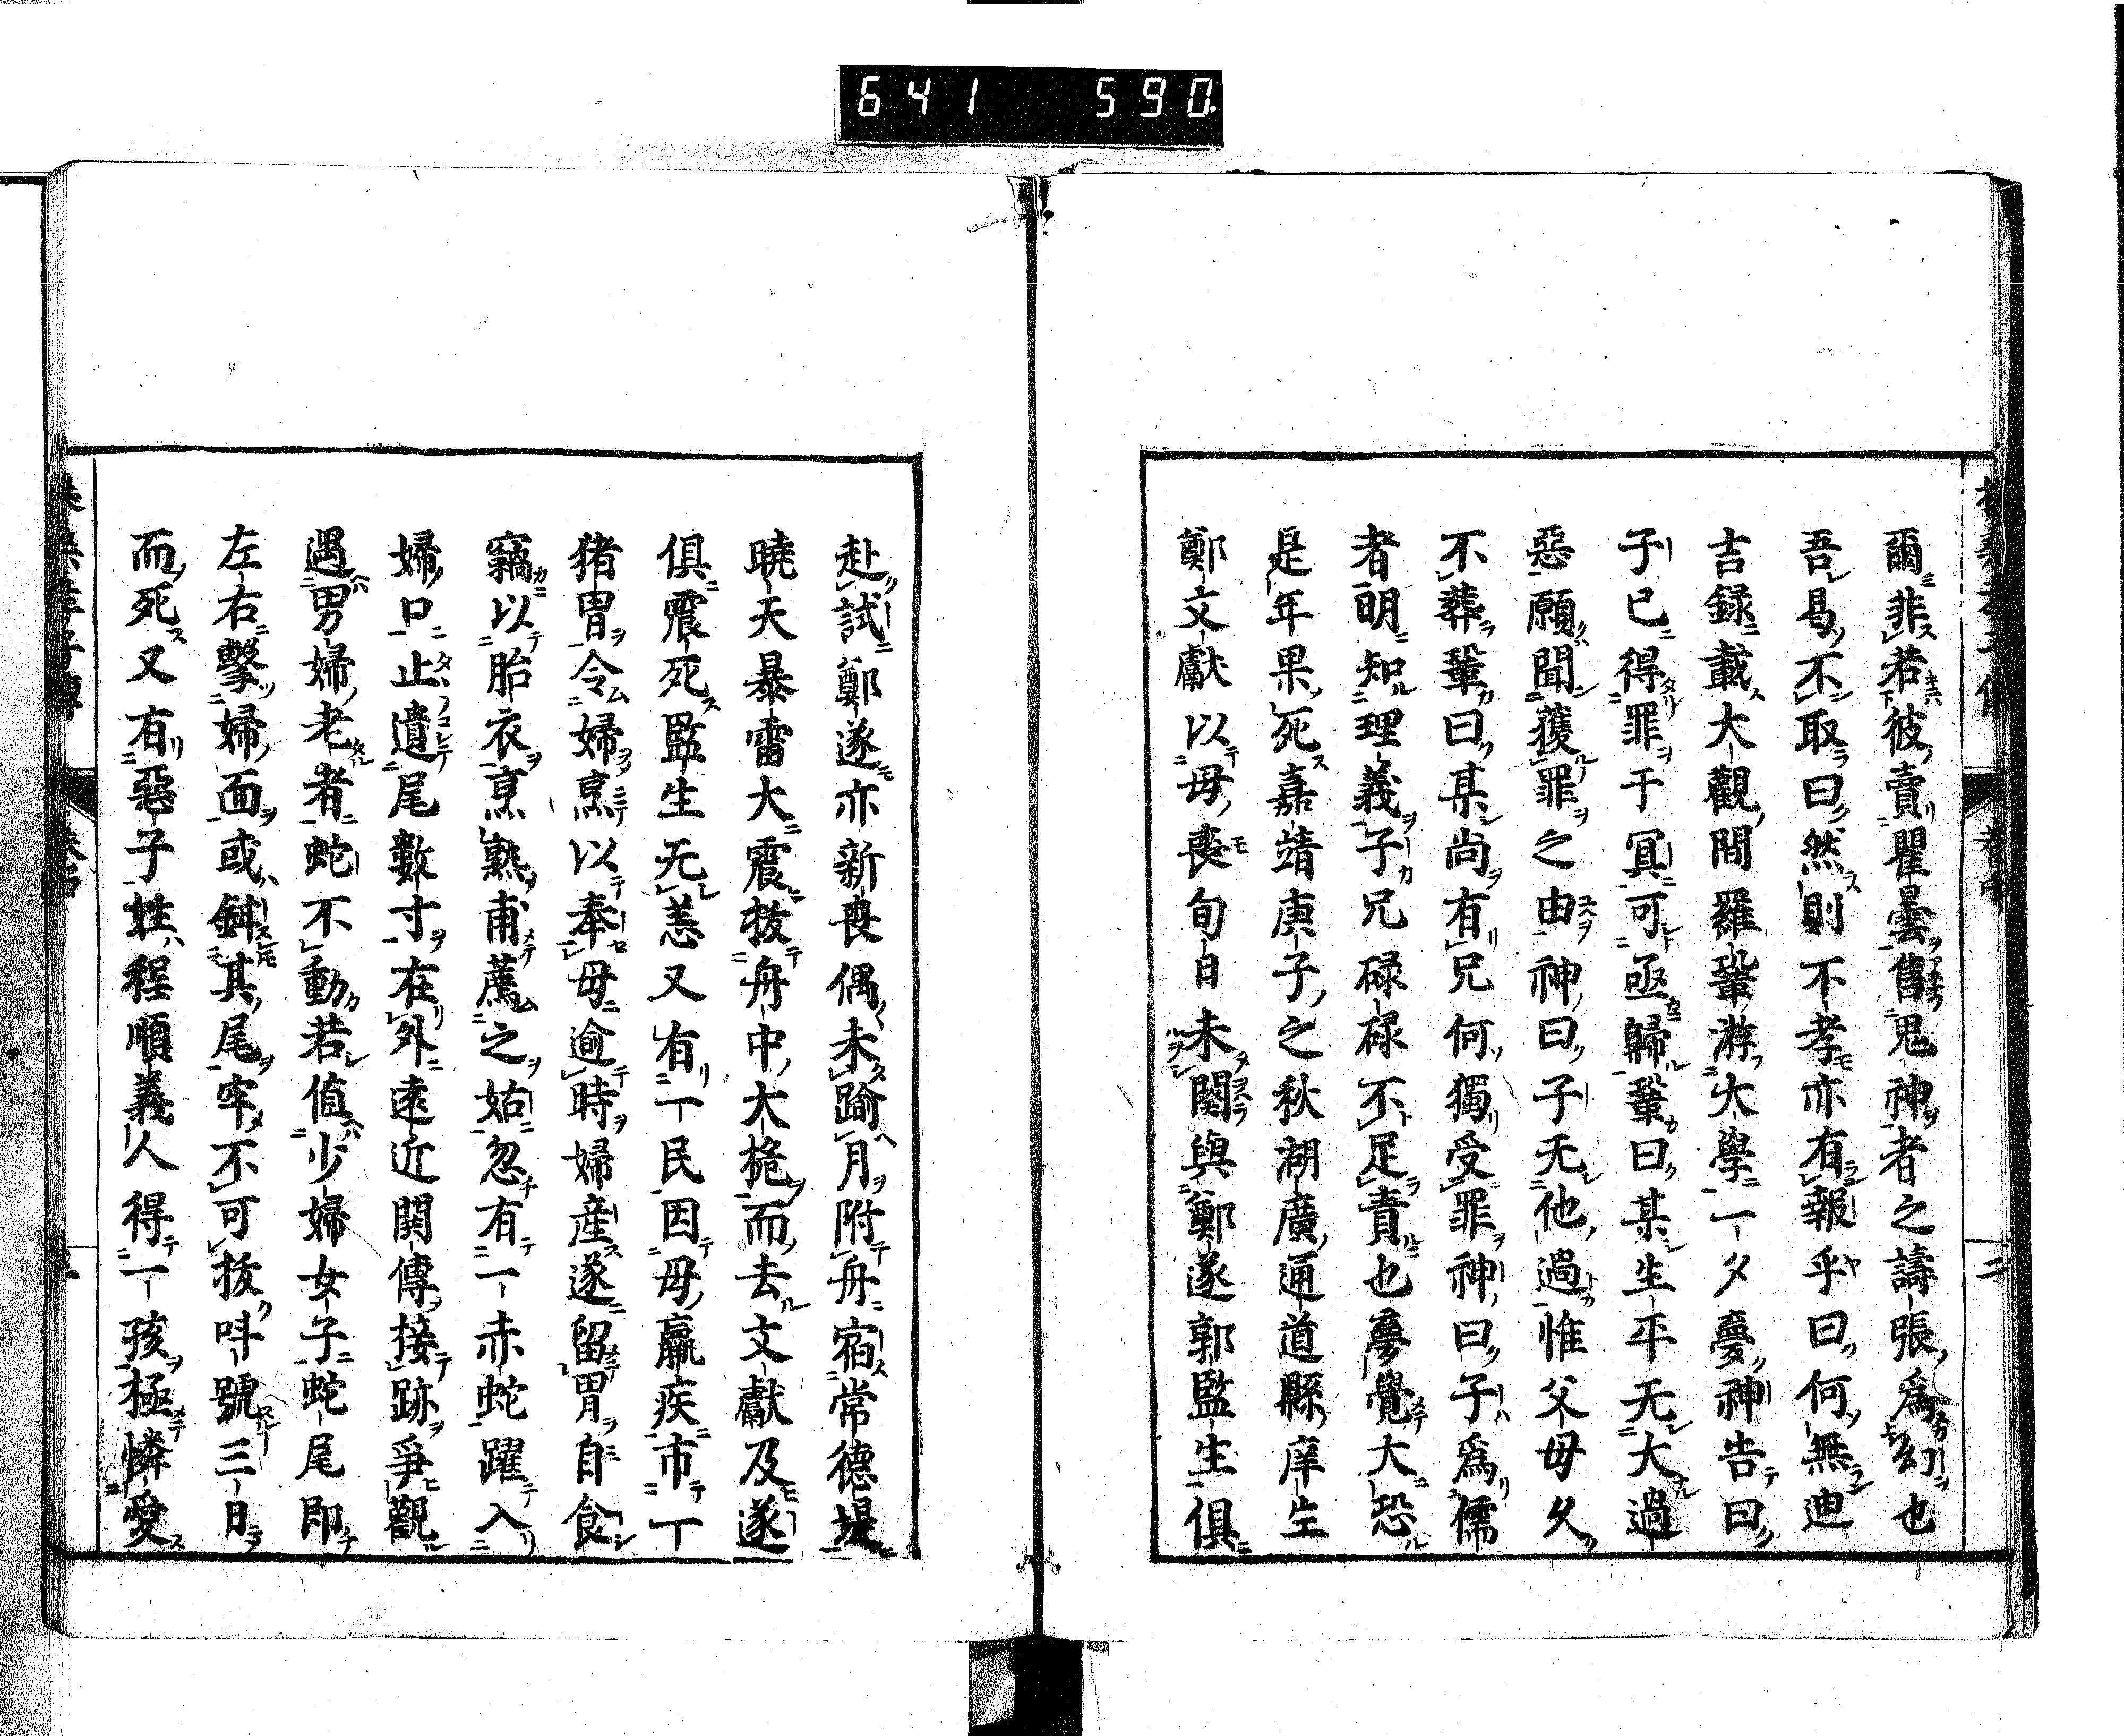 641 590.
爾非若彼賣瞿曇售鬼神者之譸張爲幻也
吾曷不取曰然則不孝亦有報乎曰何無迪
吉録載大觀間羅鞏游大學一夕夢神告曰
子已得罪于冥可亟歸鞏曰某生平无大過
惡願聞獲罪之由神曰子无他過惟父母久
不葬鞏曰某尚有兄何獨受罪神曰子爲儒
者明知理義子兄碌碌不足責也夢覺大恐
是年果死嘉靖庚子之秋湖廣通道縣庠生
鄭文獻以母喪旬日未闋與鄭遂郭監生俱
赴試鄭遂亦新喪偶未踰月附舟宿常德堤
曉天暴雷大震拔舟中大桅而去文獻及遂
俱震死監生无恙又有一民因母羸疾市一
猪胃令婦烹以奉母逾時婦産遂留胃自食
竊以胎衣烹熟甫薦之姑忽有一赤蛇躍入
婦口止遺尾數寸在外遠近関傳接跡爭觀
遇男婦老者蛇不動若值少婦女子蛇尾即
左右擊婦面或鉗其尾牢不可拔呌號三日
而死又有惡子姓程順義人得一孩極憐愛